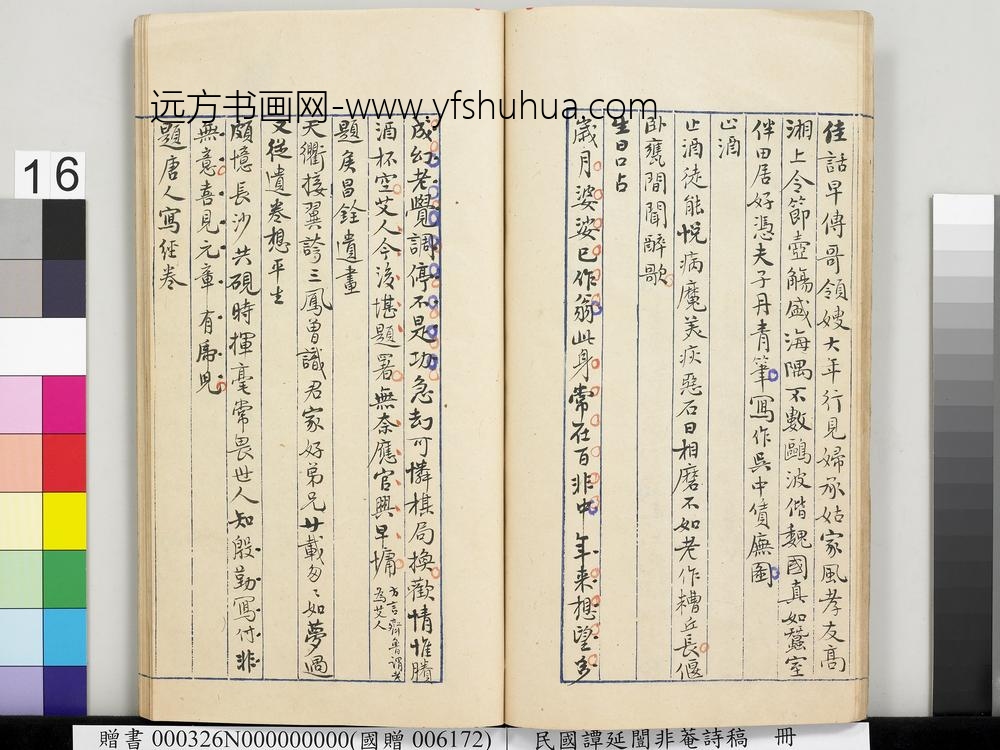 佳話早傳哥領嫂大年行見婦承姑家風孝友高
湘上令節壺觴盛海隅不數鷗波偕魏國真如蠶室
伴田居好憑夫子丹青筆寫作吳中賃廡圖
止酒
止酒徒能悅病魔美疢惡石日相磨不如老作糟丘長偃
臥甕間聞醉歌
生日口占
歲月婆娑已作翁此身常在百非中年来想望
成幻老覺調停不是功急劫可憐棋局換歡情惟賸
酒杯空艾人今後堪題署無奈應官興早慵
方言齊魯謂老
為艾人
題侯昌銓遺畫
天衢接翼誇三鳳曾識君家好弟兄廿載匆匆如夢過
又從遺卷想平生
頗憶長沙共硯時揮毫常畏世人知殷勤寫付非
無意喜見元章有虎兒
題唐人寫經卷
远方书画网-www.yfshuhua.com
16
贈書 000326N000000000(國贈 006172) 民國譚延闓非菴詩稿 冊